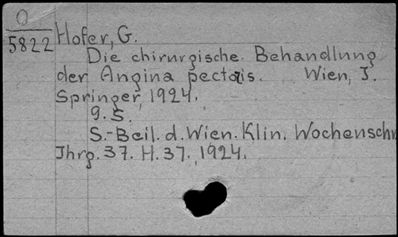 O
5822
Hofer, G.
Die chirurgische Behandlung
der Angina pectoris. Wien, J.
Springer, 1924.
9. S.
S.-Beil. d. Wien. Klin. Wochenschr
Jhrg. 37. H. 37. 1924.